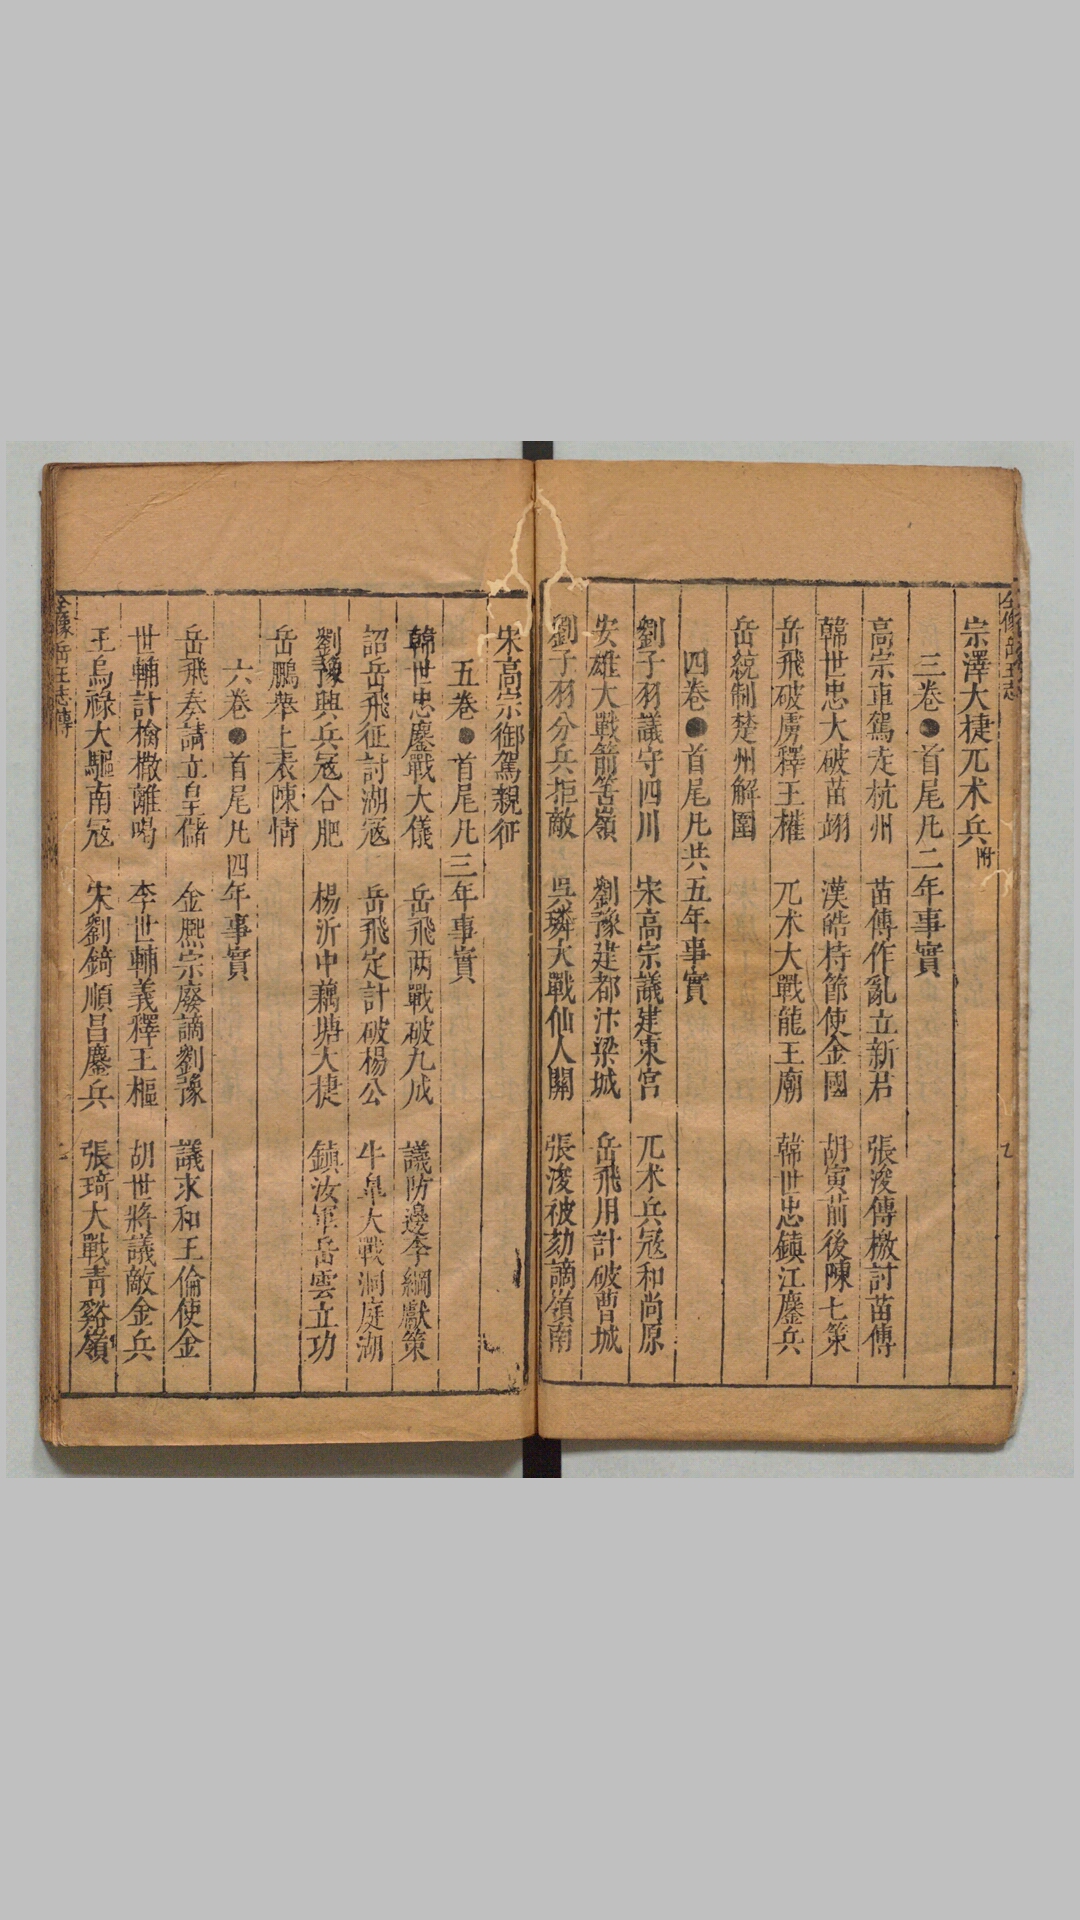 宗澤大捷兀术兵附
三卷●首尾凡二年事實
高宗車駕走杭州 苗傅作亂立新君 張浚傳檄討苗傅
韓世忠大破苗翊 漢皓持節使金國 胡寅前後陳七策
岳飛破虜釋王權 兀术大戰龍王廟 韓世忠鎮江鏖兵
岳統制楚州解圍
四卷●首尾凡共五年事實
劉子羽議守四川 宋高宗議建東宮 兀术兵冦和尚原
安雄大戰箭筈嶺 劉豫建都汴梁城 岳飛用計破曹城
劉子羽分兵拒敵 吳璘大戰仙人關 張浚被劾謫嶺南
宋高宗御駕親征
五卷●首尾凡三年事實
韓世忠鏖戰大儀 岳飛两戰破九成 議防邊李綱獻策
詔岳飛征討湖冦 岳飛定計破楊公 牛臯大戰洞庭湖
劉豫興兵冦合肥 楊沂中藕塘大捷 鎮汝軍岳雲立功
岳鵬舉上表陳情
六卷●首尾凡四年事實
岳飛奏請立皇儲 金熈宗廢謫劉豫 議求和王倫使金
世輔計擒撒離喝 李世輔義釋王樞 胡世將議敵金兵
王烏祿大驅南冦 宋劉錡順昌鏖兵 張琦大戰青谿嶺
全像岳王志傳